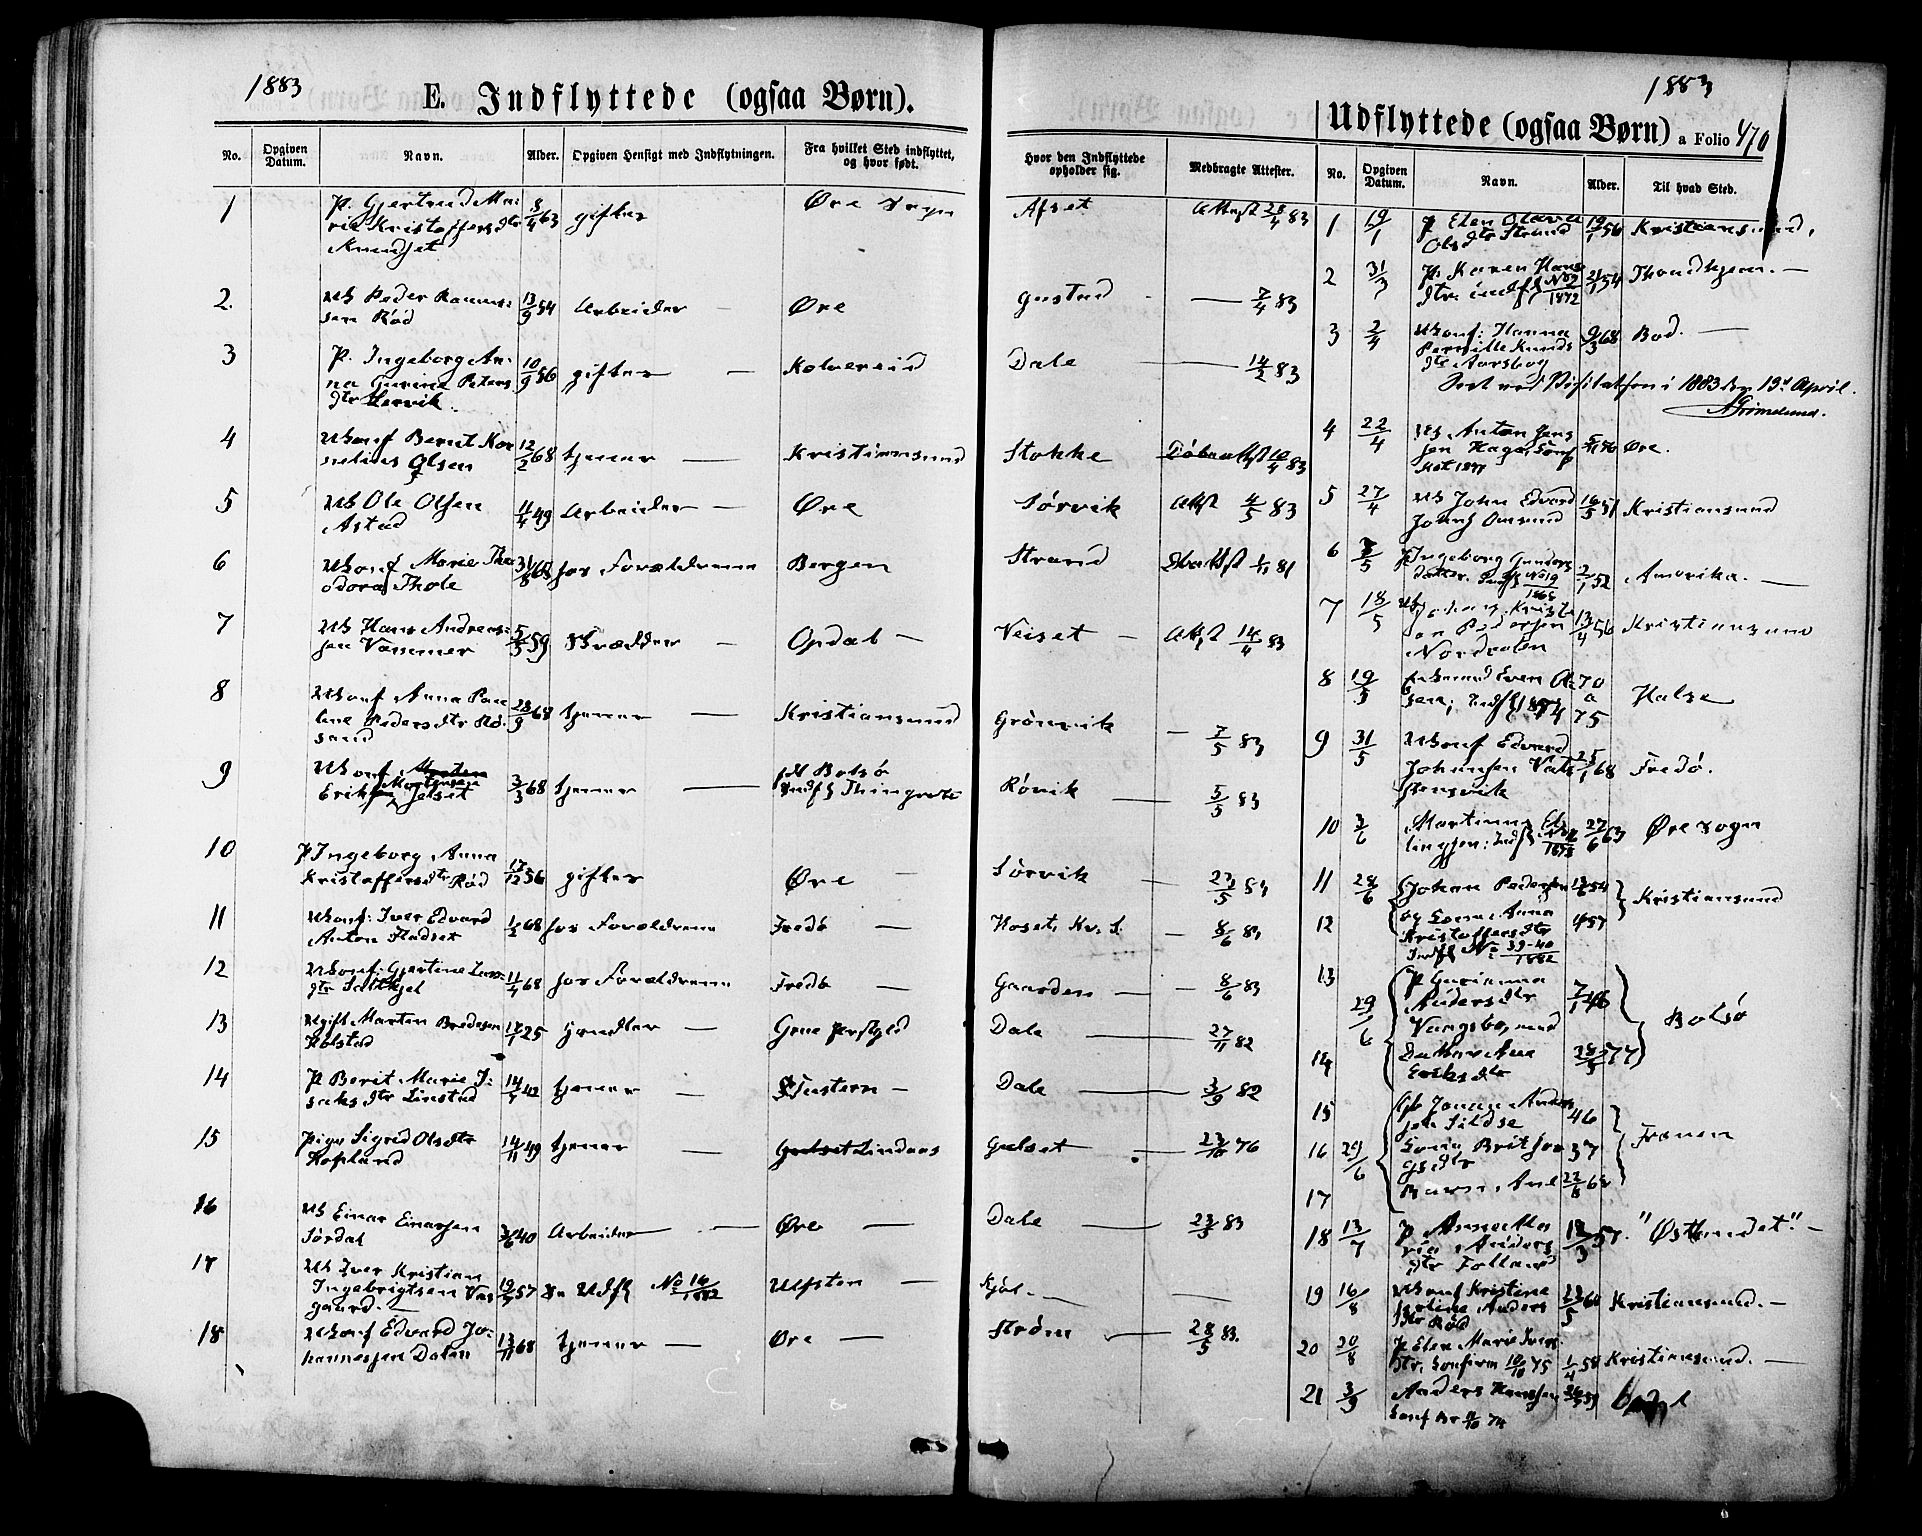 1883
E. Indflyttede (ogsaa Børn).
No. Opgiven Datum. Navn. Alder. Opgiven Hensigt med Indflytningen. Fra hvilket Sted indflyttet, og hvor født.
Hvor den Indflyttede opholder sig. Medbragte Attester.
1 P. Gjertrud Marie Kristoffersdtr 8/4 63 giftes Øre Sogn Afset Attest 28/4 83
2. Peder Rasmussen Rød 13/9 54 Arbeider — Øre Gustad — 7/4 83
3 P. Ingeborg Anna Gurine Petersdtr Lervik 10/9 56 giftes — Kolvereid Dale — 14/2 83
4 Ukonf Bernt Kornelius Olsen 12/2 68 tjener — Kristiansund Stokke Døbeattst 10/4 83
5 Ole Olsen Astad 11/4 49 Arbeider — Øre Sørvik Attst 4/5 83
6 Ukonf Marie Theodora Thole 31/8 68 hos Forældrene Bergen Strand 1/11 81
7 Hans Andreassen Vammer 5/5 59 Skrædder — Opdal — Veiset — Attst 14/4 83
8 Ukonf Anna Pauline Pedersdtr Røsand 28/9 68 tjener — Kristiansund Grønvik — 7/5 83
9 Ukonf Erik Mortensen Jelset 3/3 68 tjener — Bolsø Rövik — 5/5 83
10 P Ingeborg Anna Kristoffersdtr Rød 17/12 56 giftes Øre — Sørvik — 23/5 83
11 Ukonf: Iver Edvard Anton Fladset 1/2 68 hos Forældrene Fredø — Hoset, Kv. S. — 8/6 83
12 Ukonf: Gjertine Larsdtr 11/4 68 hos Forældrene Fredø — Gaarden — 8/6 83
13 Ugift Marten Bredesen Holstad 17/1 25 Handler — Dale — 27/11 82
14 P Berit Marie Isaksdtr Linstad 14/7 42 tjener — Tustern — Dale — 3/9 82
15 Pige Sigrid Olsdtr Hopland 14/11 49 tjener — Lindaas Gulset — 23/10 76
16 Einar Einarsen Sördal 3/6 40 Arbeider — Øre — Dale — 23/5 83
17 Iver Kristian Ingebrigtsen Vaagaard. — 19/7 57 Se Udfl No 16/1882 Ulfsten — Kjöl. — —
18 Ukonf Edvard Johannessen Dalen 13/11 68 tjener — Øre — Strøm — 28/5 83
1883
Udflyttede (ogsaa Børn) a Folio 470
No. Opgiven Datum. Navn. Alder. Til hvad Sted.
1 19/1 P Elen Olava Olsdtr Strand 19/1 56 Kristiansund,
2 31/3 P. Karen Hansdtr. indfl No 2/1872 21/1 54 Throndhjem. —
3 2/4 Ukonf: Hanna Pernille Knudsdtr Aarsbog 9/3 68 Bod. —
Seet ved Visitatsen i 1883 den 13de April.
AGrimelund.
4 22/4 Anton Jenssen Hagen, Konf 5/11 Øre.
5 27/4 John Edvard Johnss Omsund 16/5 51 Kristiansund
6 5/5 P Ingeborg Gundersdatter. Indfl No 19/1868 2/1 52 Amerika. —
7 18/5 Johan Kristian Pedersen Nordvolen 13/4 56 Kristiansund
8 19/5 Even Olsen; Indfl 1874 70 a 75 Halse
9 31/5 Ukonf Edvard Johansen Vatsstensvik 25/1 68 Fredø.
10 3/6 Martinus Ellingsen: Indfl 1878 27/6 63 Øre sogn
11 28/6 Johan Pedersen 54 Kristiansund
12 og Kone Anna Kristoffersdtr 57
Indfl No 39-40/1882
13 29/6 P Gurianna Andersdtr Vangsbø, med 7/1 46 Bolsø
14 Datter Ane Eriksdtr 77
15 Jonas Anderssen Sildse 46 Frænen
16 29/6 Kone Brit 37
17 Barn Ane 22/8 68
18 13/7 P Anne Maria Andersdtr Folland 12/3 57. "Østlandet". —
19 16/8 Ukonf Kristine Andersdtr Rød 23/5 Kristiansund. —
20 20/8 P Elen Marie Iversdtr. konfirm 10/10 75 1/4 58 Kristiansund. —
21 3/9 Anders Hanssen 59
konf 74